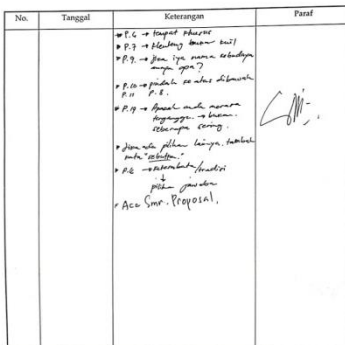 No. Tanggal Keterangan Paraf
* P.6 → tempat khusus
* P.7 → Menteng bukan kuil
* P.9. → Jika iya nama
apa?
* P.10 → pindah ke atas dibawah
P.11 P.8.
* P.19 → Apakah anda merasa
terganggu. → bukan
seberapa sering.
* Jika ada pilihan lainnya, tambah
kata "sebutkan."
* P.2 → /tradisi
↓
pilihan jawaban
* Acc Smr. Proposal.